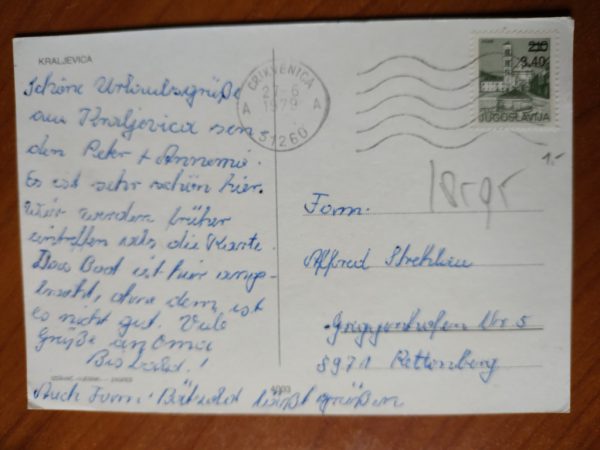 KRALJEVICA
Schöne Urlaubsgrüße
aus Kraljevica sen-
den Peter + Annemi.
Es ist sehr schön hier.
Wir werden früher
eintreffen als die Karte.
Das Boot ist hier ange-
bracht, ohne dem ist
es nicht gut. Viele
Grüße an Oma
Bis bald!
Auch Fam. läßt grüßen
CRIKVENICA
27-6
1979
A A
51260
2.10
3.40
JUGOSLAVIJA
1.-
Fam.
Alfred Strehlau
Nr 5
8971 Rettenberg